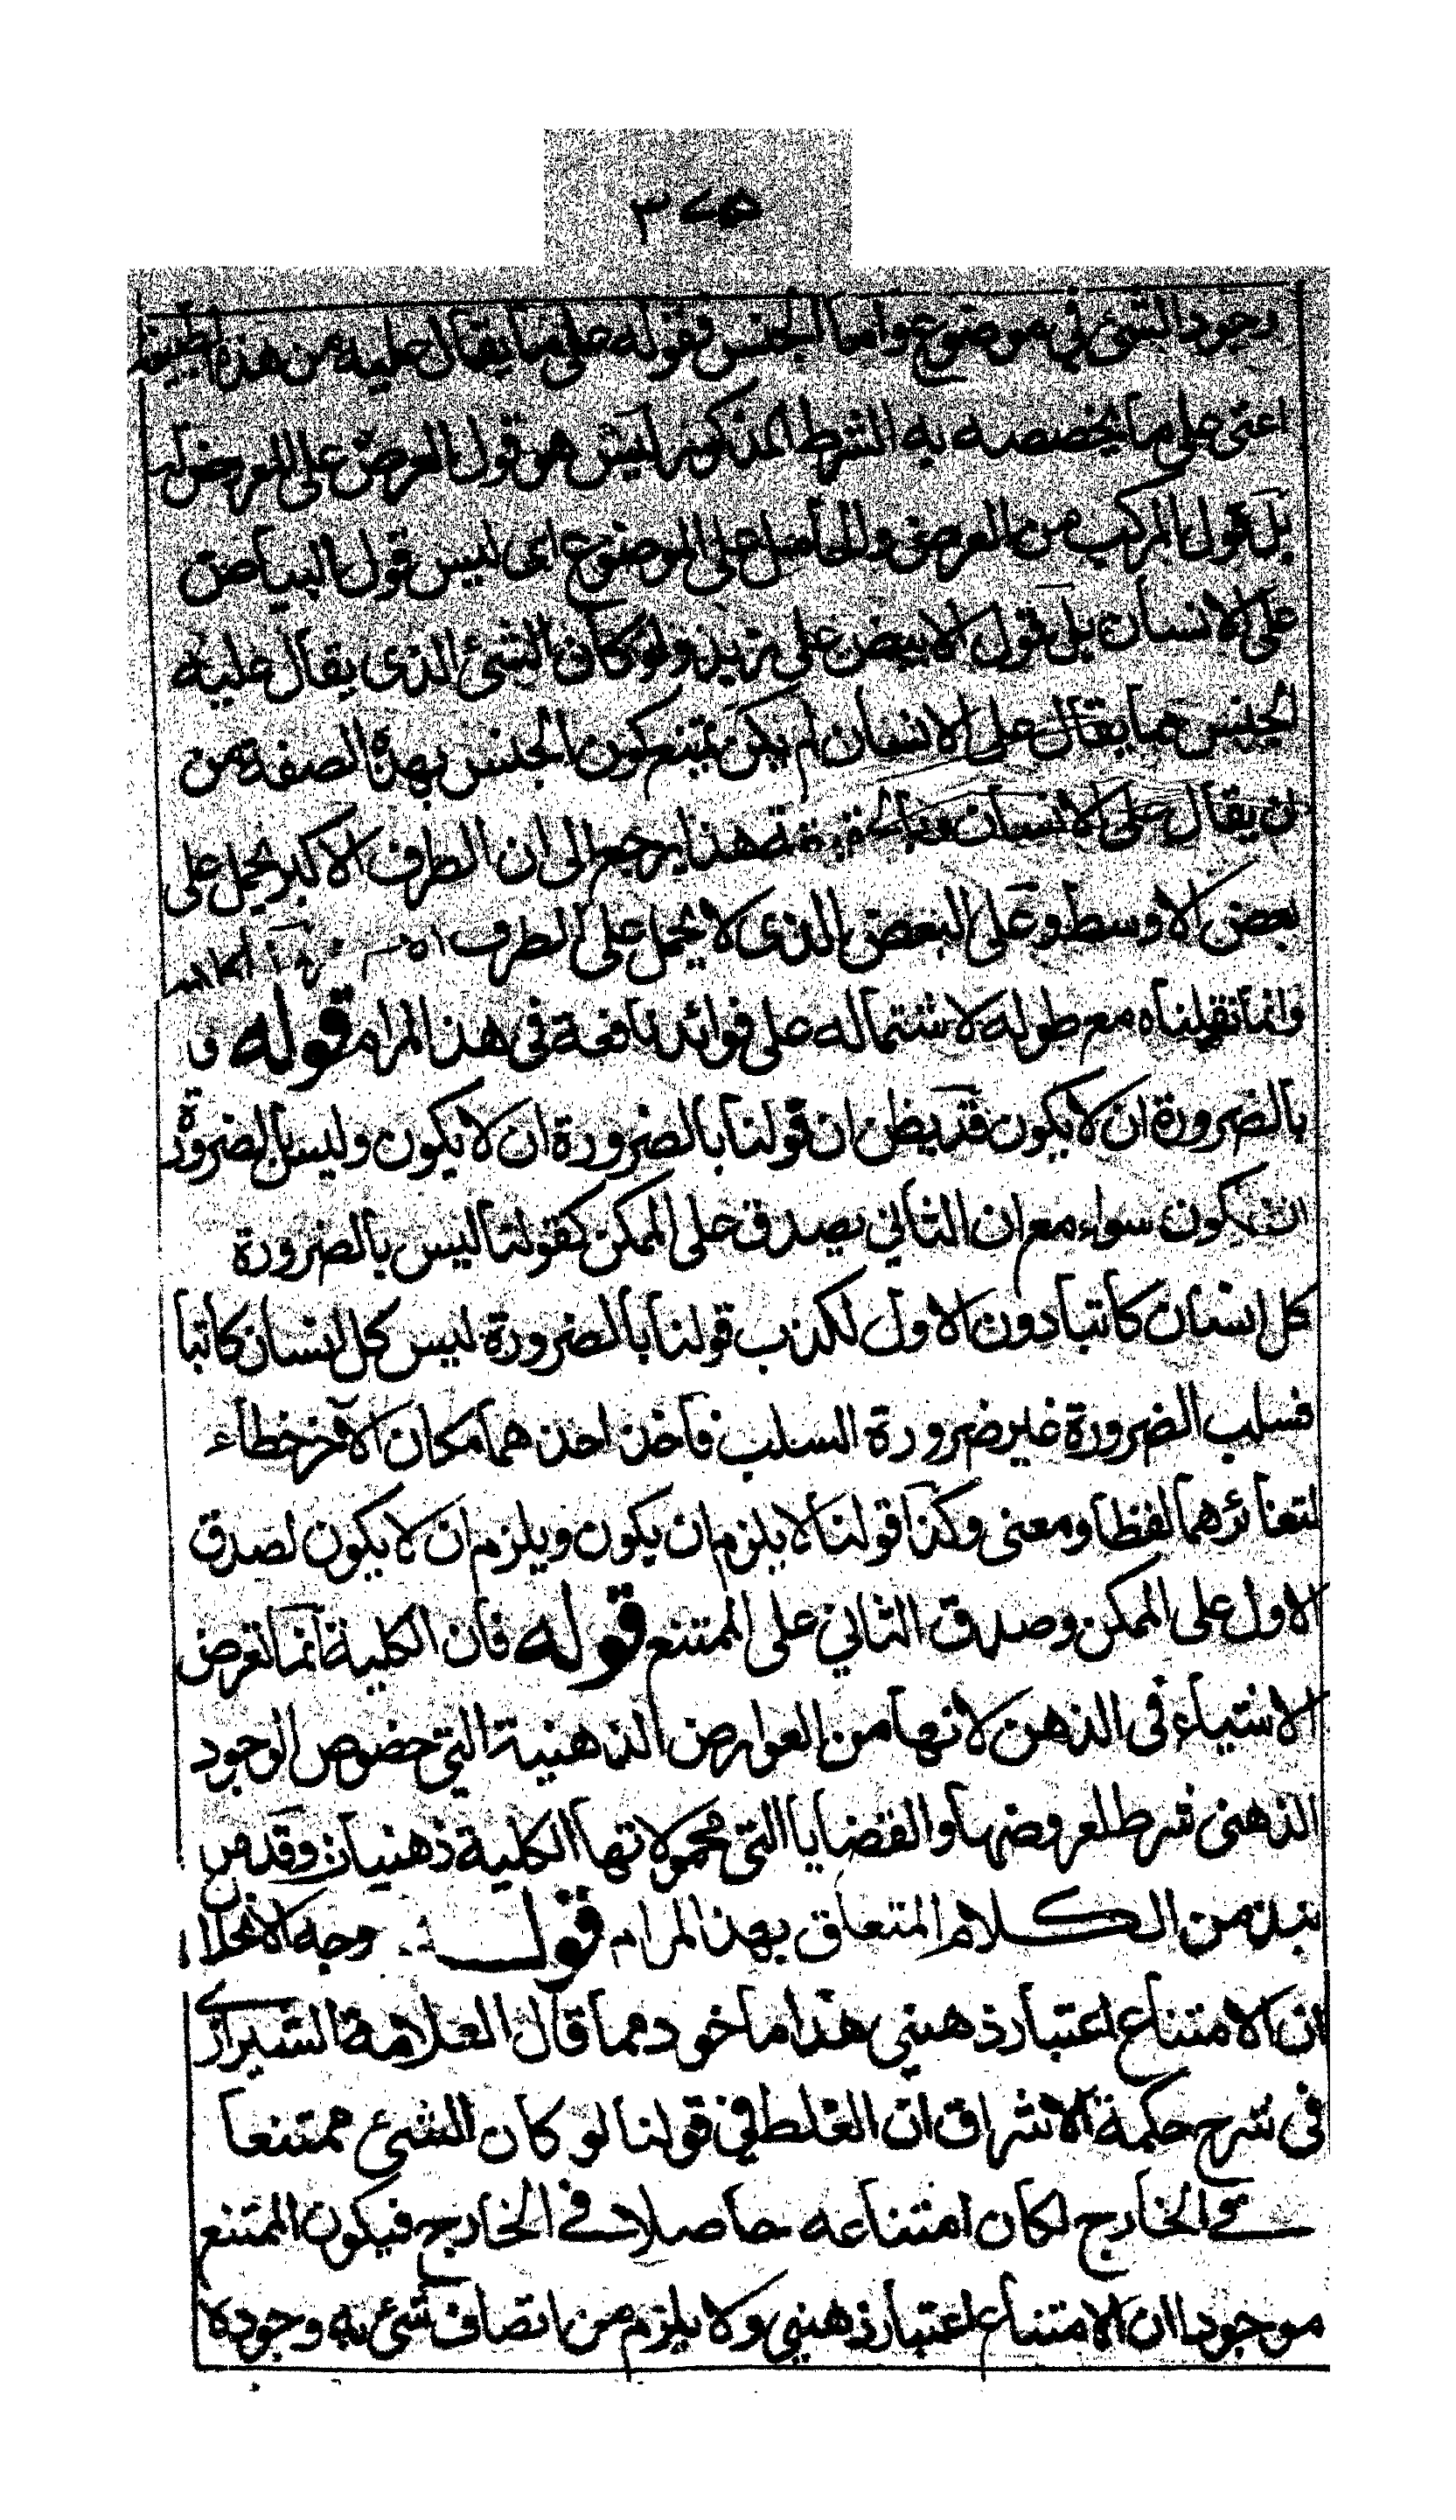 ٣٧٥
وجود الشئ في موضوع واما الجنس فقوله على ما يقال عليه من هذه الطبيعة
اعنى على ما يخصصه به الشرط المذكور ليس هو قول العرض على المعرض له
بل قول المركب من العرض والحامل على الموضوع اى ليس قول البياض
على الانسان بل قول الابيض على زيد ولو كان الشئ الذى يقال عليه
الجنس مما يقال على الانسان لم يكن يمتنع كون الجنس بهذه الصفة من
ان يقال على الانسان هذا يرجع الى ان الطرف الاكبر يحمل على
بعض الاوسط وعلى البعض الذى لا يحمل على الطرف
وانما نقلناه مع طوله لاشتماله على فوائد نافعة فى هذا المرام قوله و
بالضرورة ان لا يكون قد يظن ان قولنا بالضرورة ان لا يكون وليس بالضرورة
ان يكون سواء مع ان الثاني يصدق على الممكن كقولنا ليس بالضرورة
كل انسان كاتبا دون الاول لكذب قولنا بالضرورة ليس كل انسان كاتبا
فسلب الضرورة غير ضرورة السلب فاخذ احدهما مكان الآخر خطاء
لتغائرهما لفظا ومعنى وكذا قولنا لا يلزم ان يكون ويلزم ان لا يكون لصدق
الاول على الممكن وصدق الثاني على الممتنع قوله فان الكلية انما تعرض
الاشياء فى الذهن لانها من العوارض الذهنية التي خصوص الوجود
الذهنى شرط لعروضها والقضايا التي محمولاتها الكلية ذهنيات وقد مر
نبذ من الكلام المتعلق بهذا المرام قوله وجه الانحلال
ان الامتناع اعتبار ذهني هذا ماخوذ مما قال العلامة الشيرازى
فى شرح حكمة الاشراق ان الغلط في قولنا لو كان الشئ ممتنعا
في الخارج لكان امتناعه حاصلا في الخارج فيكون الممتنع
موجودا ان الامتناع اعتبار ذهني ولا يلزم من اتصاف شئ به وجوده